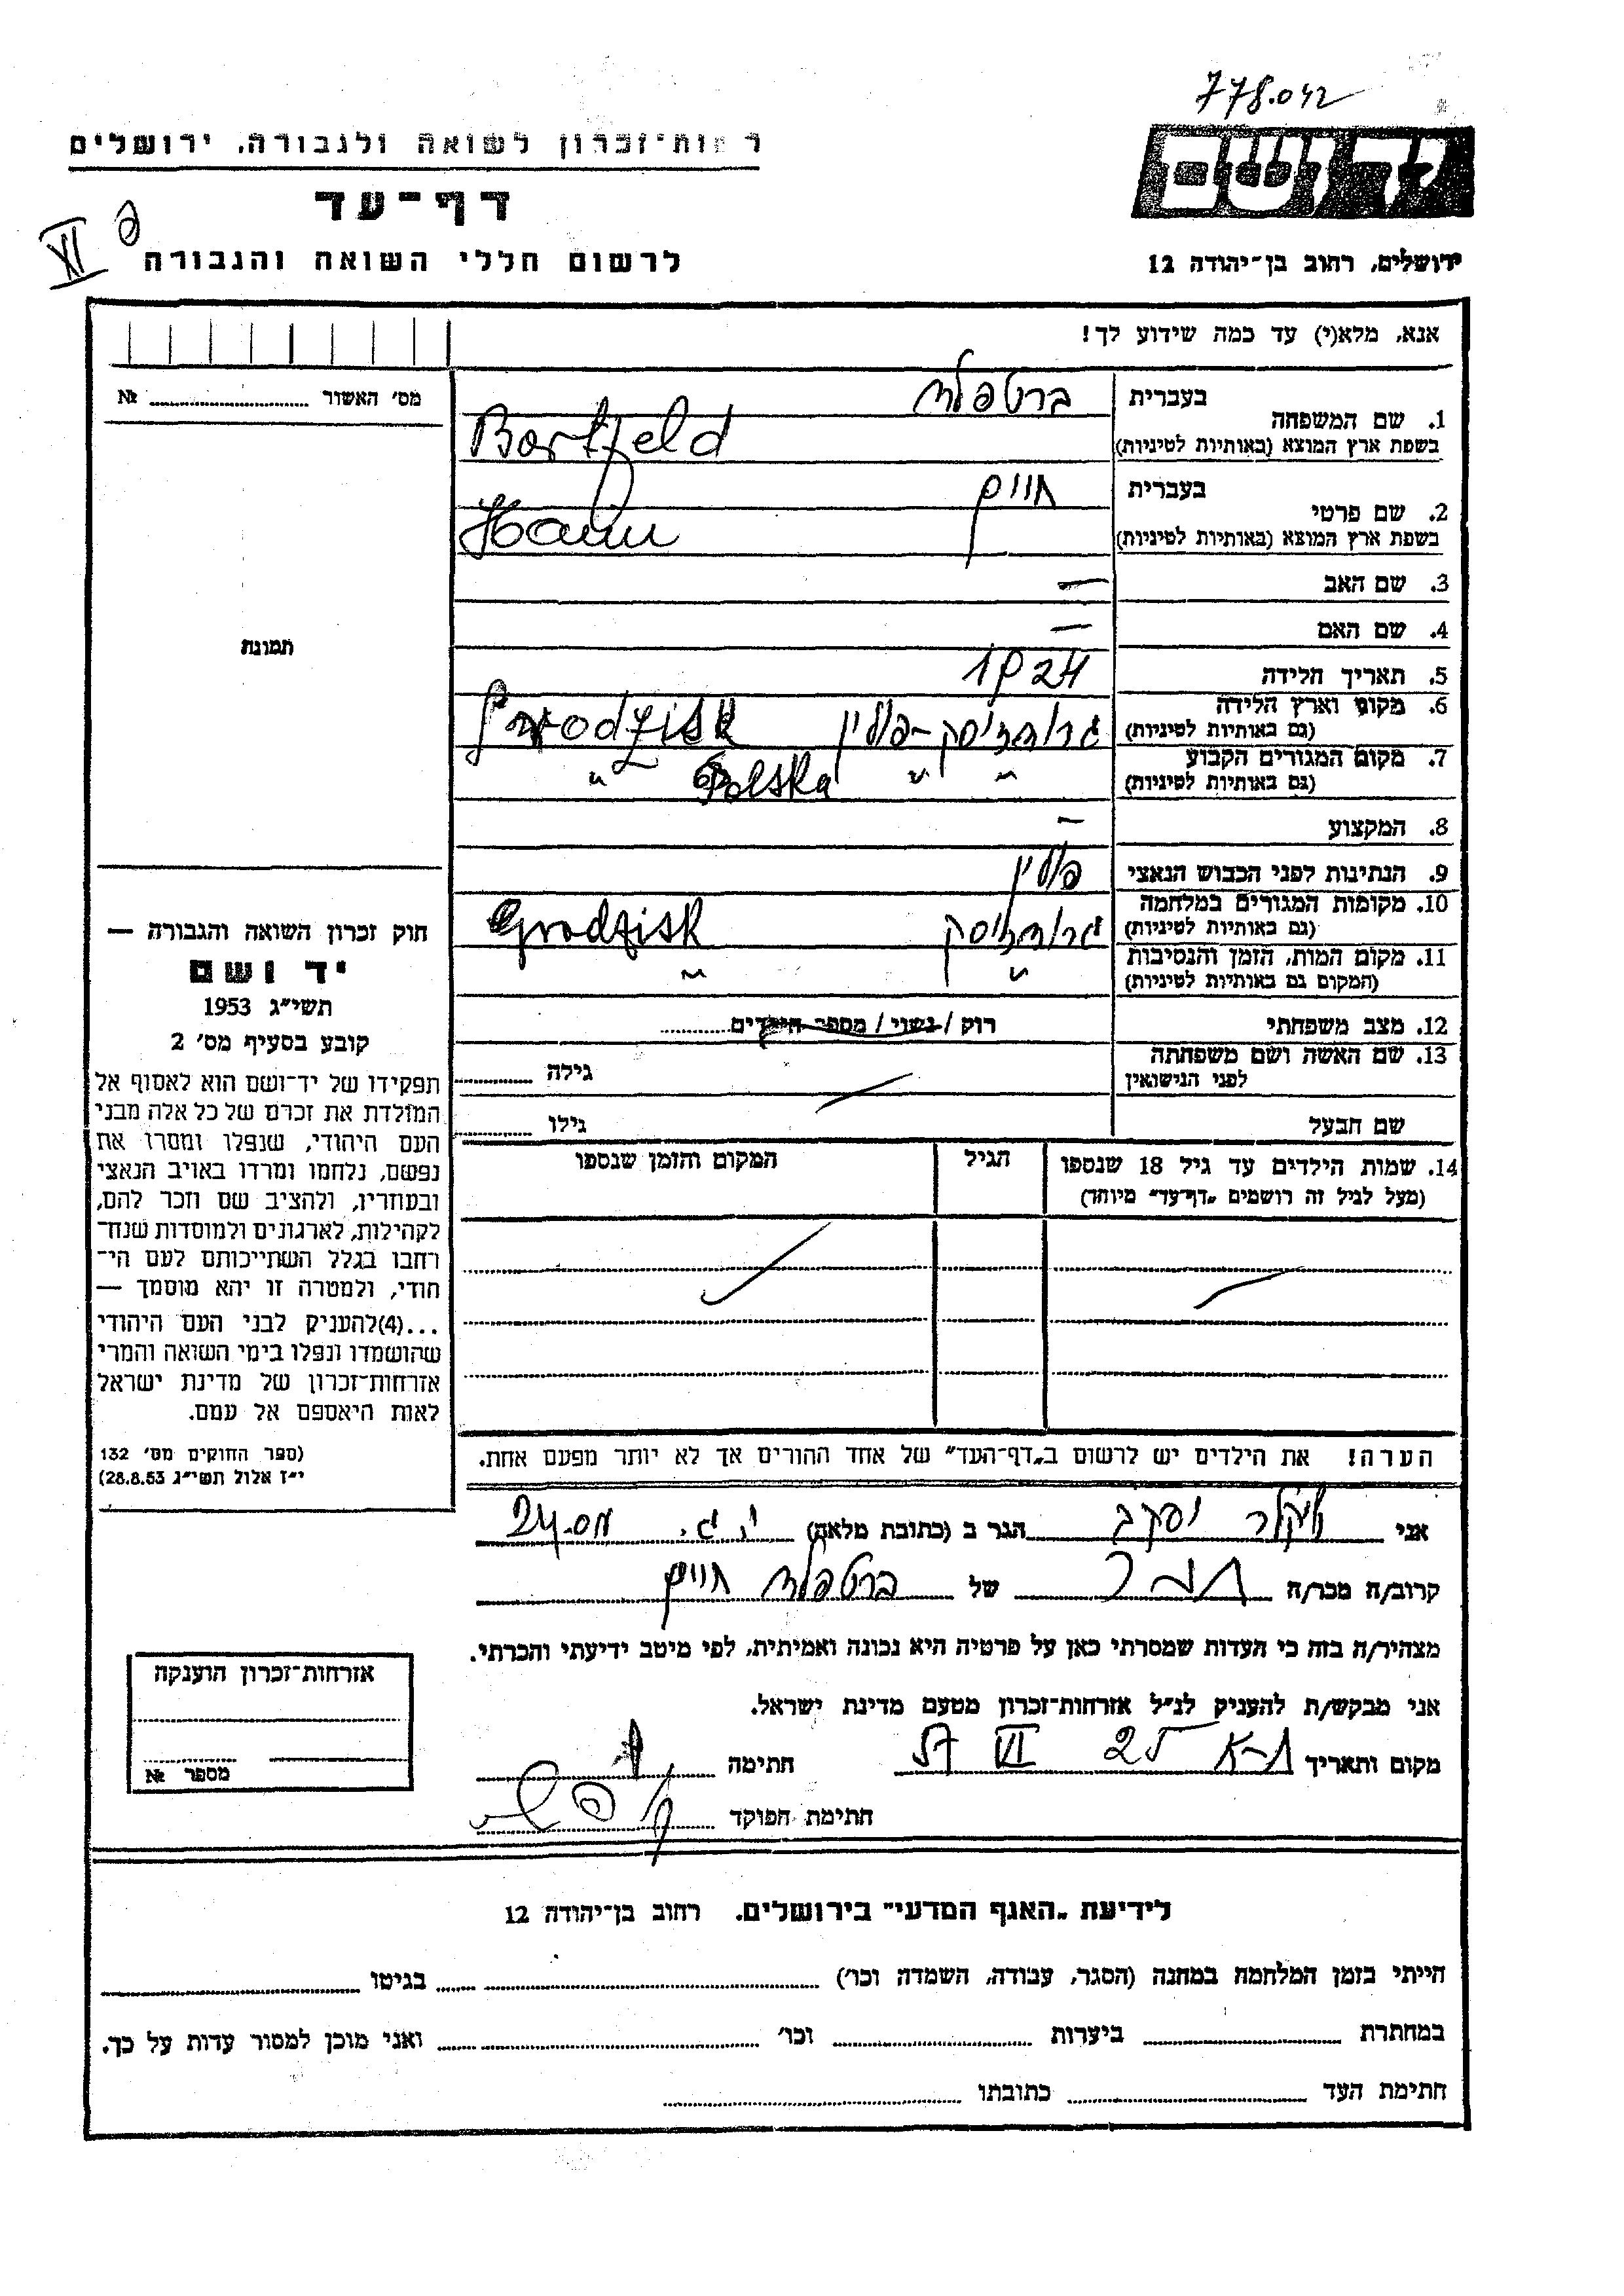 778.042
רשות-זכרון לשואה ולגבורה, ירושלים
דף-עד
לרשום חללי השואה והגבורה
XI
ירושלים, רחוב בן-יהודה 12
אנא, מלא(י) עד כמה שידוע לך!
מס׳ האשור №
1. שם המשפחה
בעברית ברטפלד
בשפת ארץ המוצא (באותיות לטיניות) Bartfeld
2. שם פרטי
בעברית חיים
בשפת ארץ המוצא (באותיות לטיניות) Haim
3. שם האב —
4. שם האם —
5. תאריך הלידה 1924
6. מקום וארץ הלידה (גם באותיות לטיניות) גרודזיסק-פולין Grodzisk
7. מקום המגורים הקבוע (גם באותיות לטיניות) " " Polska "
8. המקצוע —
9. הנתינות לפני הכבוש הנאצי פולין
10. מקומות המגורים במלחמה (גם באותיות לטיניות) גרודזיסק Grodzisk
11. מקום המות, הזמן והנסיבות (המקום גם באותיות לטיניות) " "
12. מצב משפחתי רוק / נשוי / מספר הילדים
13. שם האשה ושם משפחתה לפני הנישואין גילה
שם הבעל גילו
14. שמות הילדים עד גיל 18 שנספו
(מעל לגיל זה רושמים „דף-עד" מיוחד)
הגיל
המקום והזמן שנספו
הערה! את הילדים יש לרשום ב„דף-העד" של אחד ההורים אך לא יותר מפעם אחת.
תמונת
חוק זכרון השואה והגבורה —
יד ושם
תשי״ג 1953
קובע בסעיף מס׳ 2
תפקידו של יד-ושם הוא לאסוף אל
המולדת את זכרם של כל אלה מבני
העם היהודי, שנפלו ומסרו את
נפשם, נלחמו ומרדו באויב הנאצי
ובעוזריו, ולהציב שם וזכר להם,
לקהילות, לארגונים ולמוסדות שנח-
רחבו בגלל השתייכותם לעם הי-
חודי, ולמטרה זו יהא מוסמך —
...(4)להעניק לבני העם היהודי
שהושמדו ונפלו בימי השואה והמרי
אזרחות-זכרון של מדינת ישראל
לאות היאספם אל עמם.
(ספר החוקים מס׳ 132
י״ז אלול תשי״ג 28.8.53)
אני יעקב הגר ב (כתובת מלאה)
קרוב/ה מכר/ה של ברטפלד חיים
מצהיר/ה בזה כי העדות שמסרתי כאן על פרטיה היא נכונה ואמיתית, לפי מיטב ידיעתי והכרתי.
אני מבקש/ת להעניק לנ״ל אזרחות-זכרון מטעם מדינת ישראל.
מקום ותאריך ת-א 25 VI 57 חתימה
חתימת הפוקד
אזרחות-זכרון הוענקה
מספר №
לידיעת „האגף המדעי" בירושלים. רחוב בן-יהודה 12
הייתי בזמן המלחמה במחנה (הסגר, עבודה, השמדה וכו׳) בגיטו
במחתרת ביערות וכו׳ ואני מוכן למסור עדות על כך.
חתימת העד כתובתו